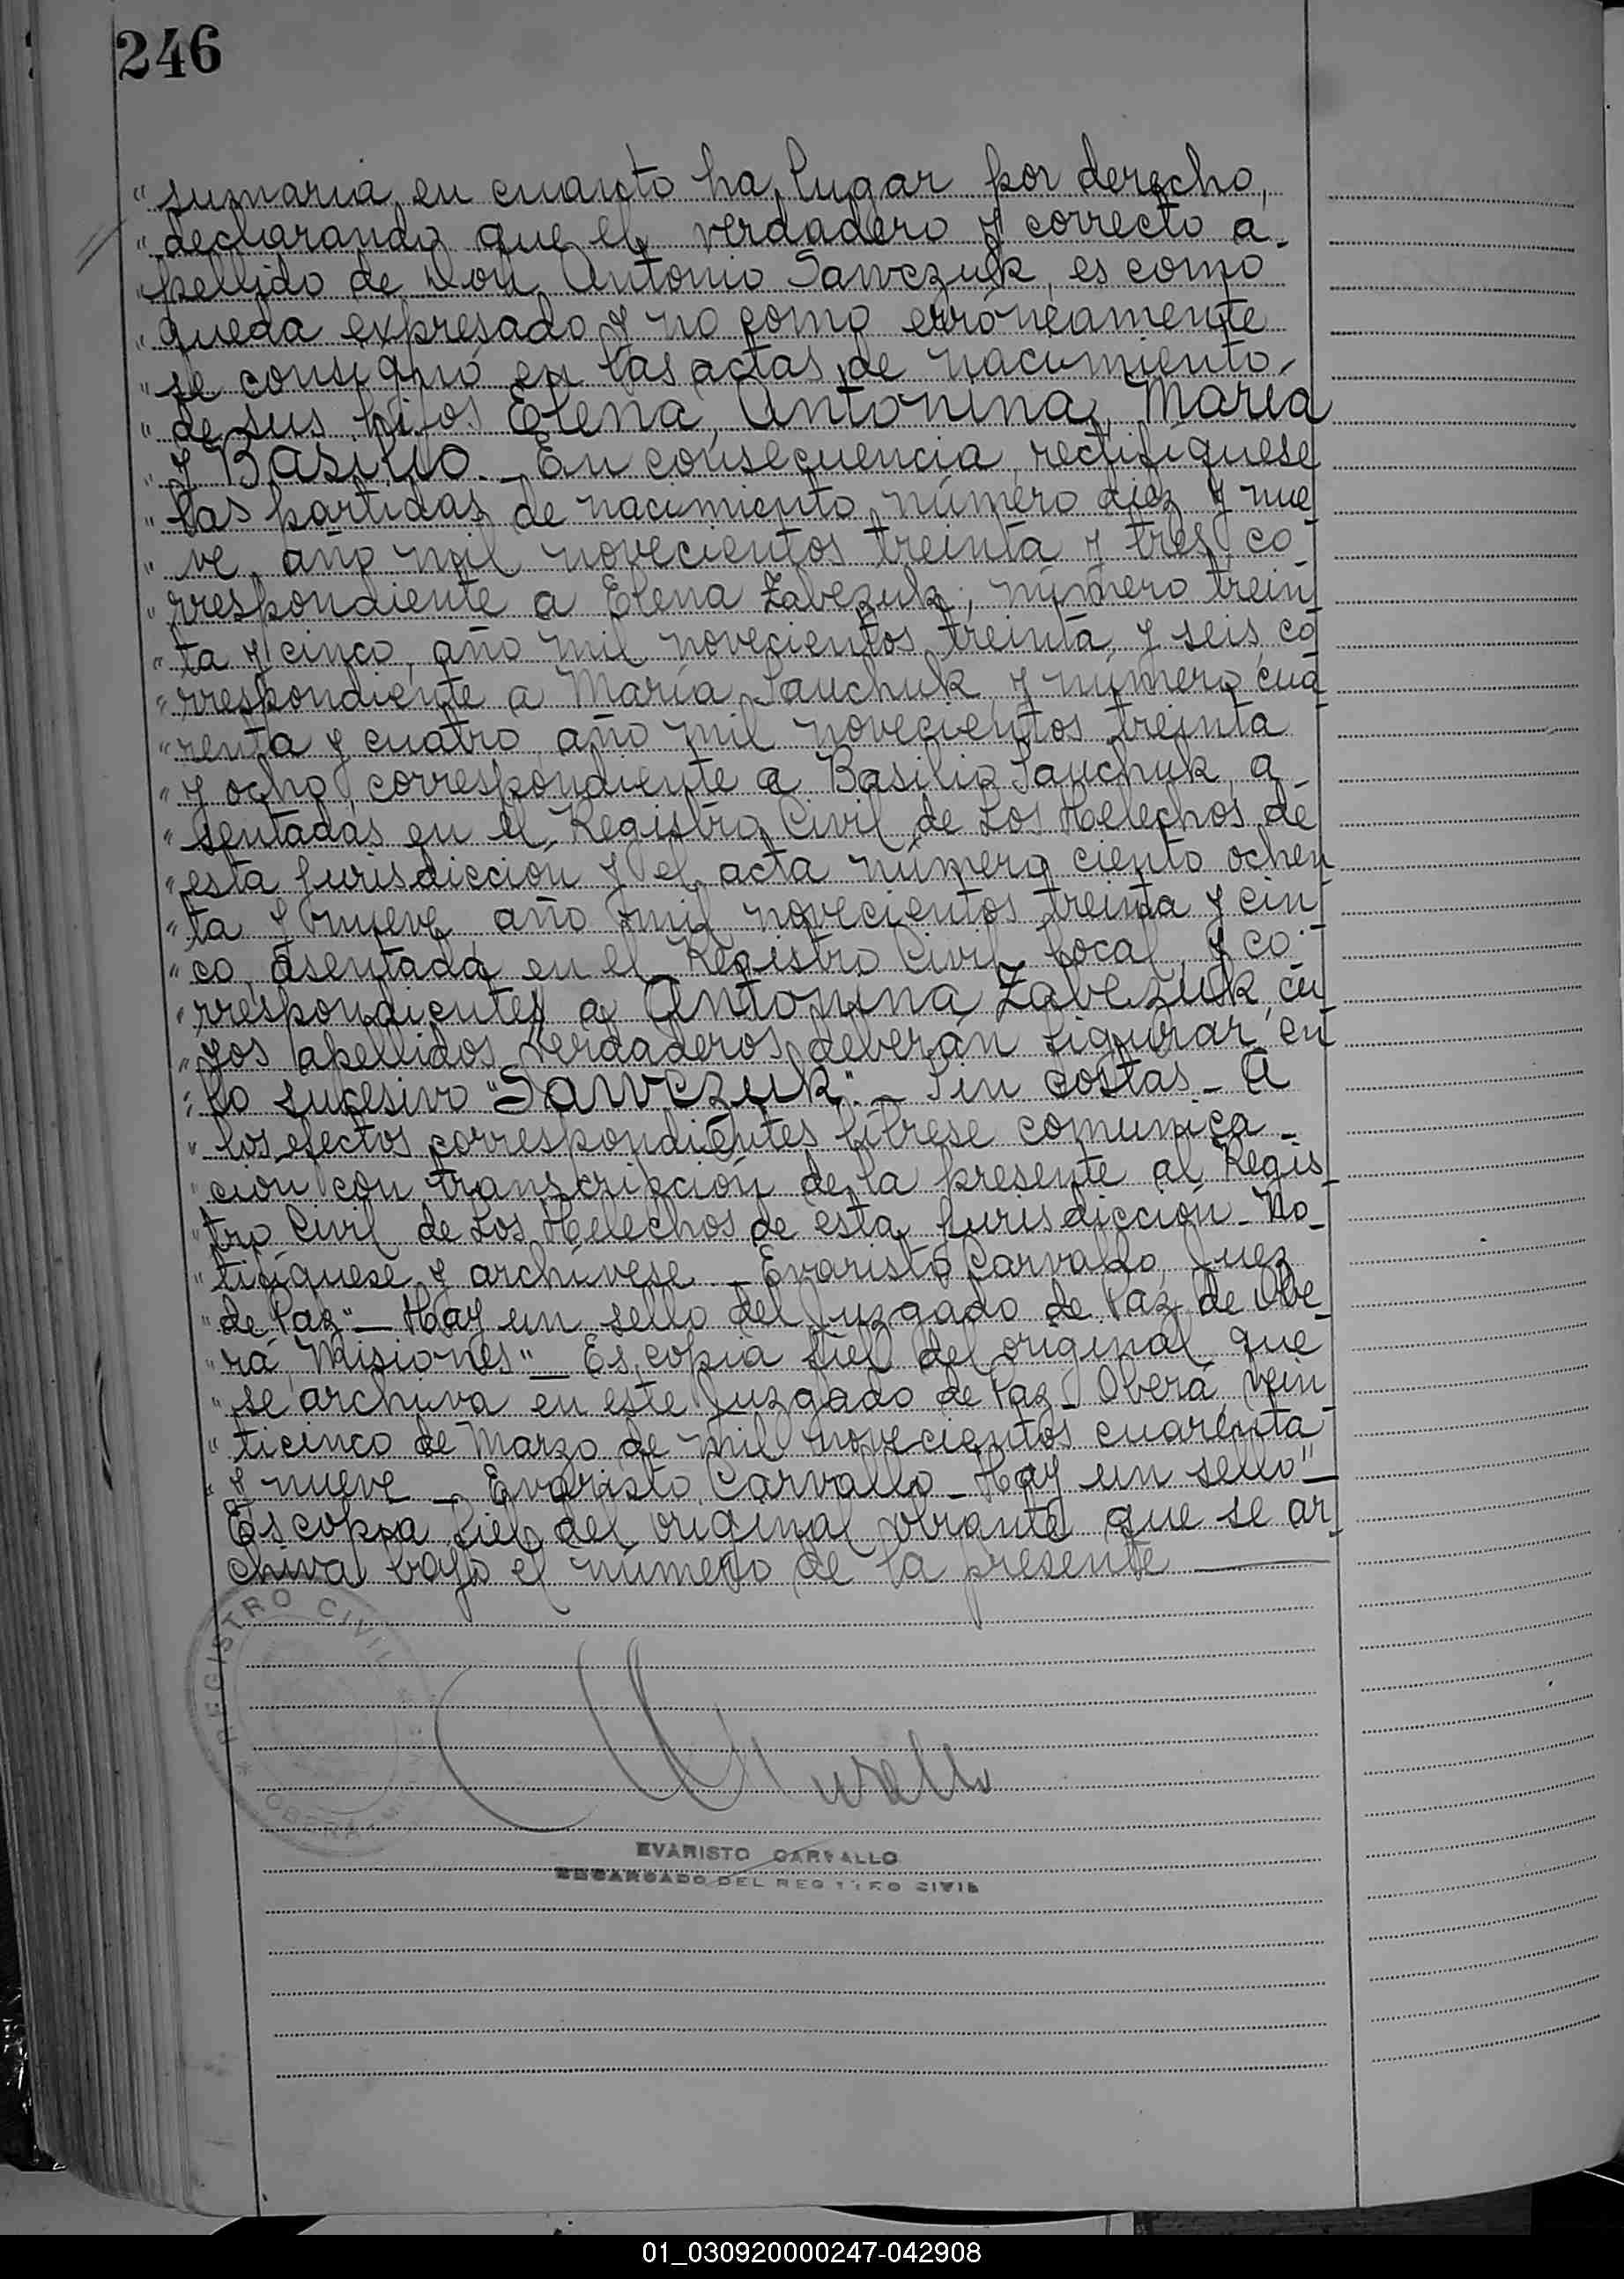 246
"sumaria, en cuanto ha lugar por derecho,
"declarando que el verdadero y correcto a-
"pellido de Don Antonio Sawczuk, es como
"queda expresado y no como erróneamente
"se consignó en las actas de nacimiento
"de sus hijos Elena, Antonina, María
"y Basilio._ En consecuencia, rectifíquese
"las partidas de nacimiento número diez y nue
"ve, año mil novecientos treinta y tres co-
"rrespondiente a Elena Zabczuk; número trein
"ta y cinco, año mil novecientos treinta y seis, co
"rrespondiente a María Sauchuk y número cua
"renta y cuatro, año mil novecientos treinta
"y ocho, correspondiente a Basilio Sauchuk, a-
"sentadas en el Registro Civil de Los Helechos de
"esta jurisdicción y el acta número ciento ochen
"ta y nueve, año mil novecientos treinta y cin
"co, asentada en el Registro Civil local, y co-
"rrespondientes a Antonina Zabczuk, cu
"yos apellidos verdaderos deberán figurar en
"lo sucesivo "Sawczuk"._ Sin costas_ A
"los efectos correspondientes líbrese comunica-
"ción con transcripción de la presente al Regis
"tro Civil de Los Helechos de esta jurisdicción_ No-
"tifíquese y archívese_ Evaristo Carvallo, Juez
"de Paz"_ Hay un sello del Juzgado de Paz de Obe-
"rá, Misiones"_ Es copia fiel del original que
"se archiva en este Juzgado de Paz_ Oberá, vein
"ticinco de Marzo de mil novecientos cuarenta
"y nueve_ Evaristo Carvallo_ Hay un sello"_
Es copia fiel del original obrante que se ar
chiva bajo el número de la presente
REGISTRO CIVIL
OBERA
EVARISTO CARVALLO
ENCARGADO DEL REGISTRO CIVIL
01_030920000247-042908